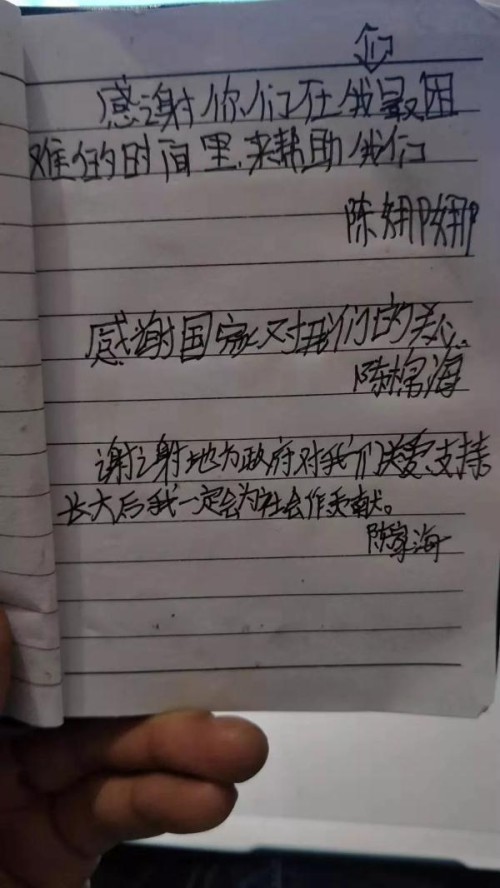 们
感谢你们在我最困
难的时间里,来帮助我们
陈娜娜
感谢国家对我们的关心
陈棉海
谢谢地方政府对我们关爱支持
长大后我一定会为社会作贡献。
陈家海